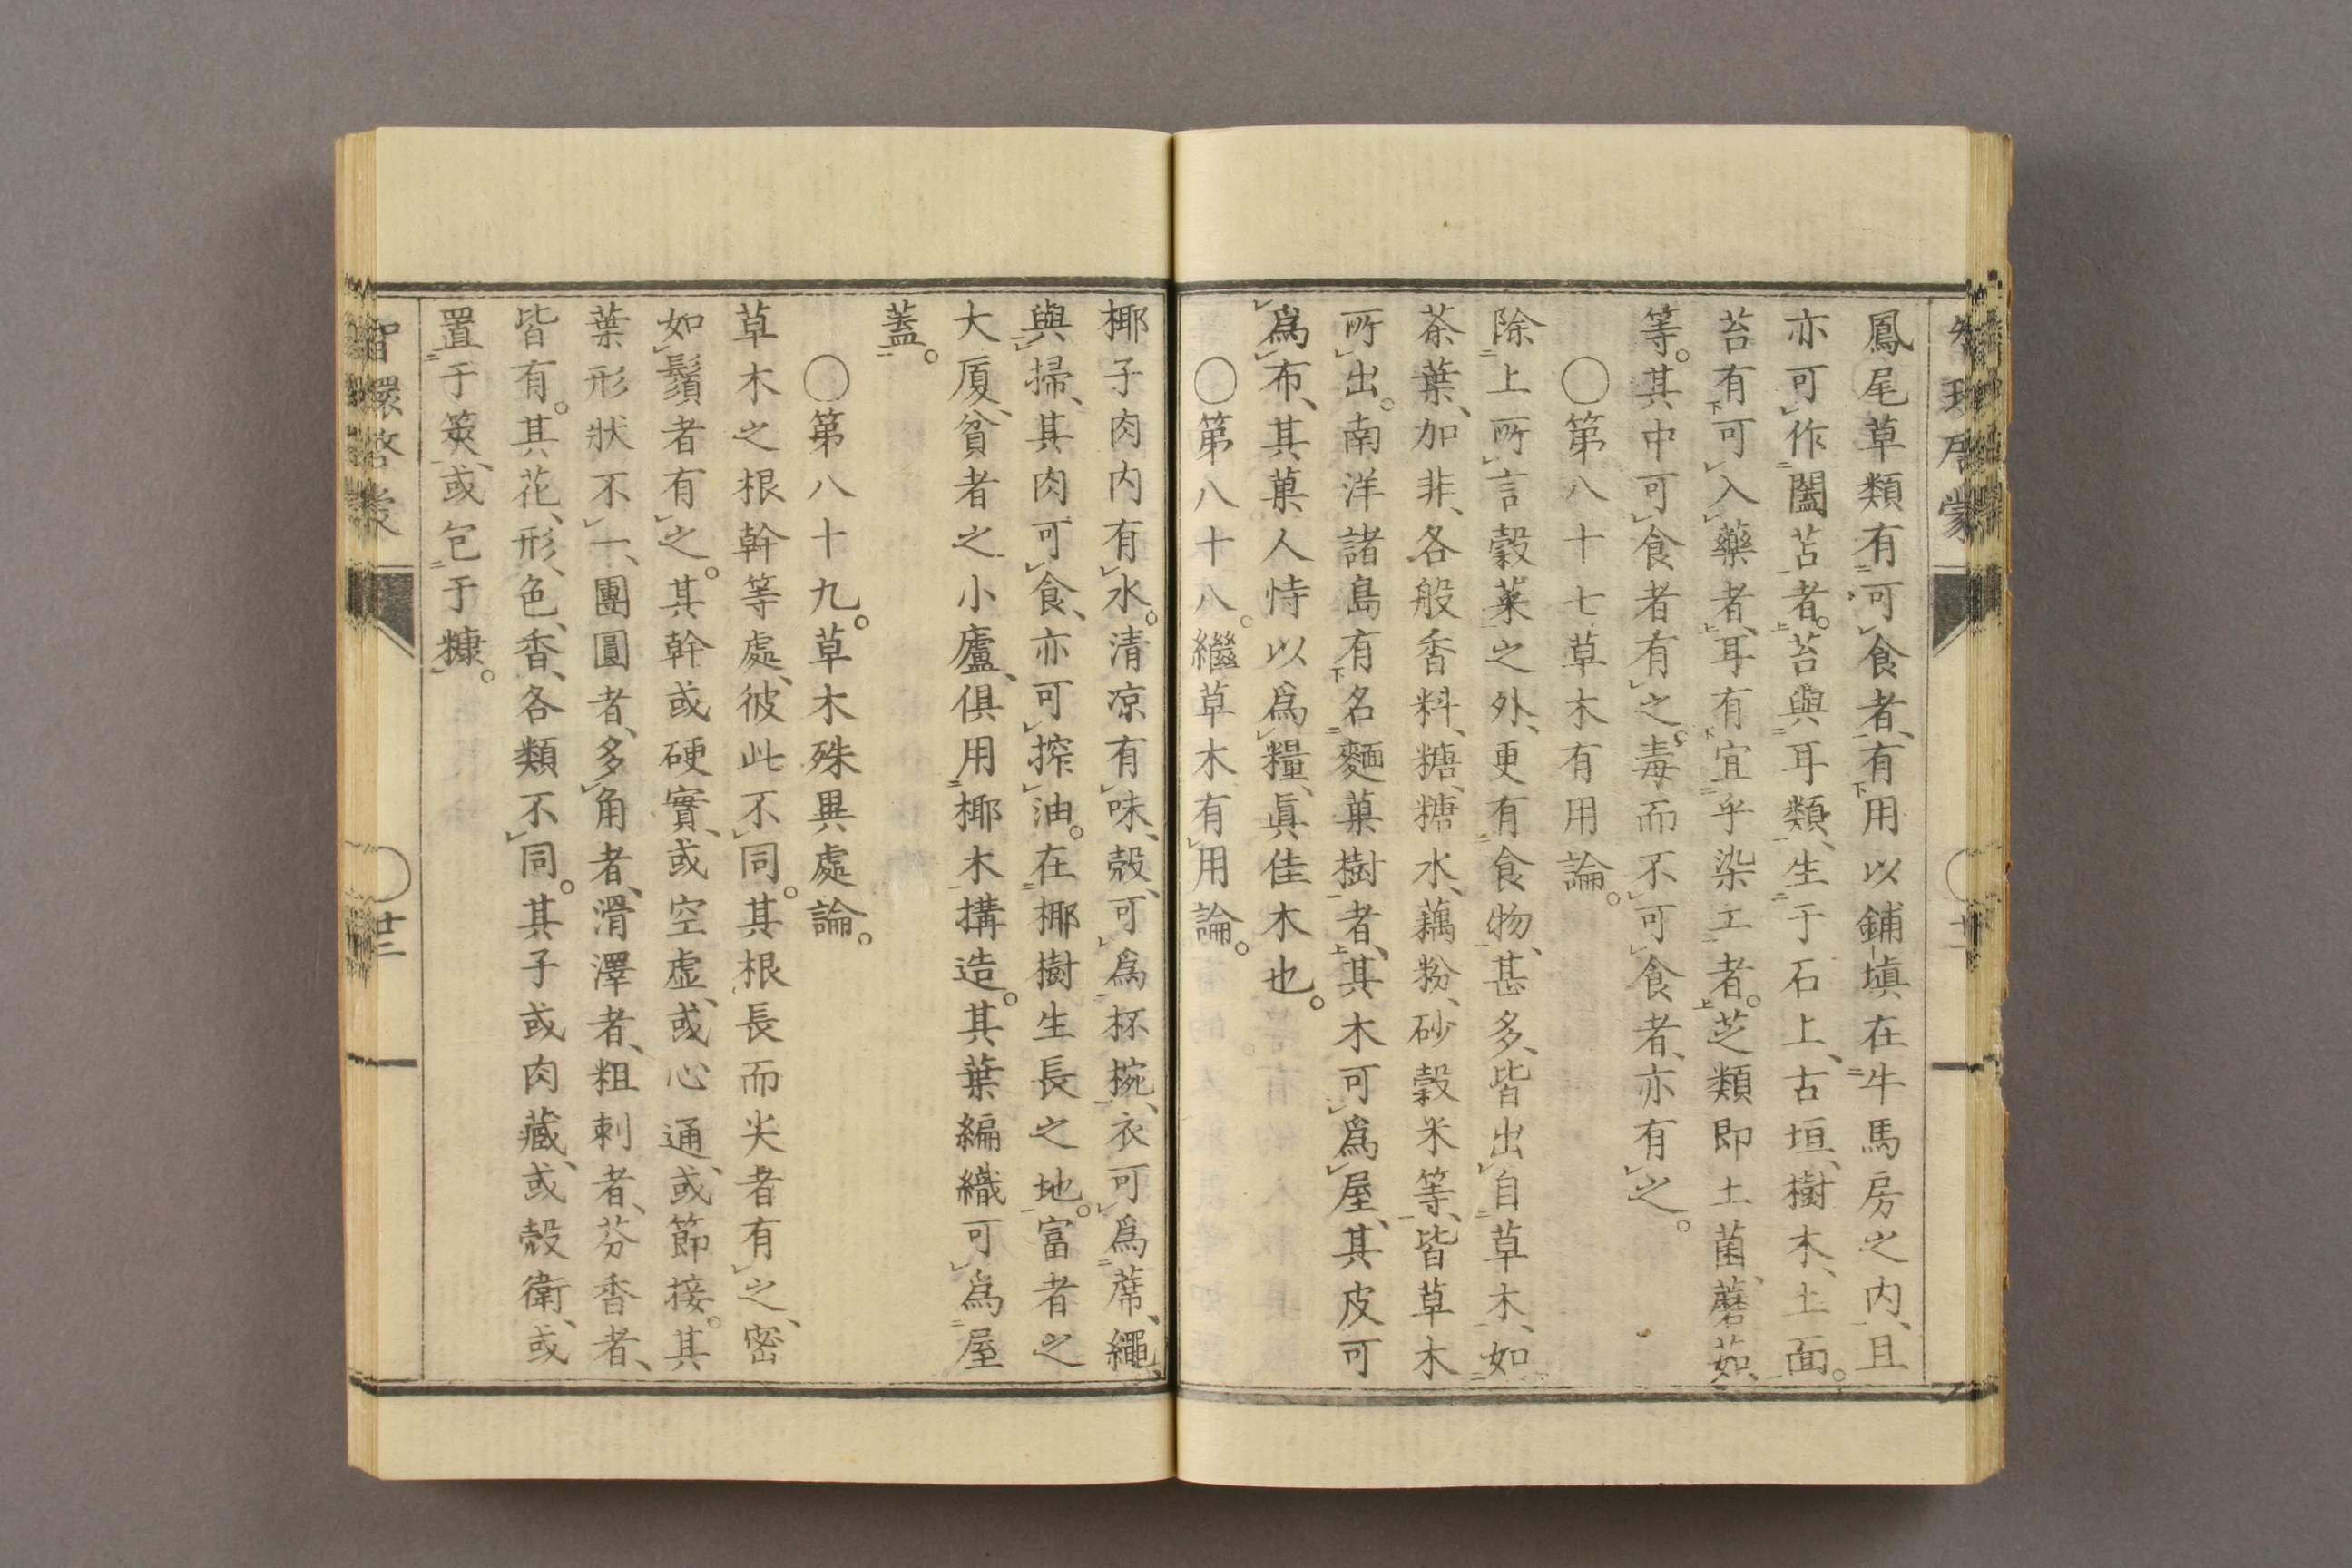 鳳尾草類有可食者、有用以鋪填在牛馬房之内、且
亦可作闔苫者。苔與耳類、生于石上、古垣、樹木、土面。
苔有可入藥者、耳有宜乎染工者。芝類即土菌、蘑菇
等。其中可食者有之。毒而不可食者、亦有之。
〇第八十七草木有用論。
除上所言穀菜之外、更有食物、甚多、皆出自草木、如
茶葉、加非、各般香料、糖、糖水、藕粉、砂穀米等、皆草木
所出。南洋諸島有名麵菓樹者、其木可爲屋、其皮可
爲布、其菓人恃以爲糧、眞佳木也。
〇第八十八。繼草木有用論。
椰子肉内有水。清凉有味、殼、可爲杯椀、衣可爲蓆、繩、
與掃、其肉可食、亦可搾油。在椰樹生長之地。富者之
大厦、貧者之小廬、俱用椰木搆造。其葉編織可爲屋
蓋。
〇第八十九。草木殊異處論。
草木之根幹等處、彼此不同。其根長而尖者有之、密
如鬚者有之。其幹或硬實、或空虚、或心通、或節接。其
葉形狀不一、團圓者、多角者、滑澤者、粗刺者、芬香者、
皆有。其花、形、色、香、各類不同。其子或肉藏、或殻衛、或
置于莢、或包于糠。
智環啓蒙
〇廿二